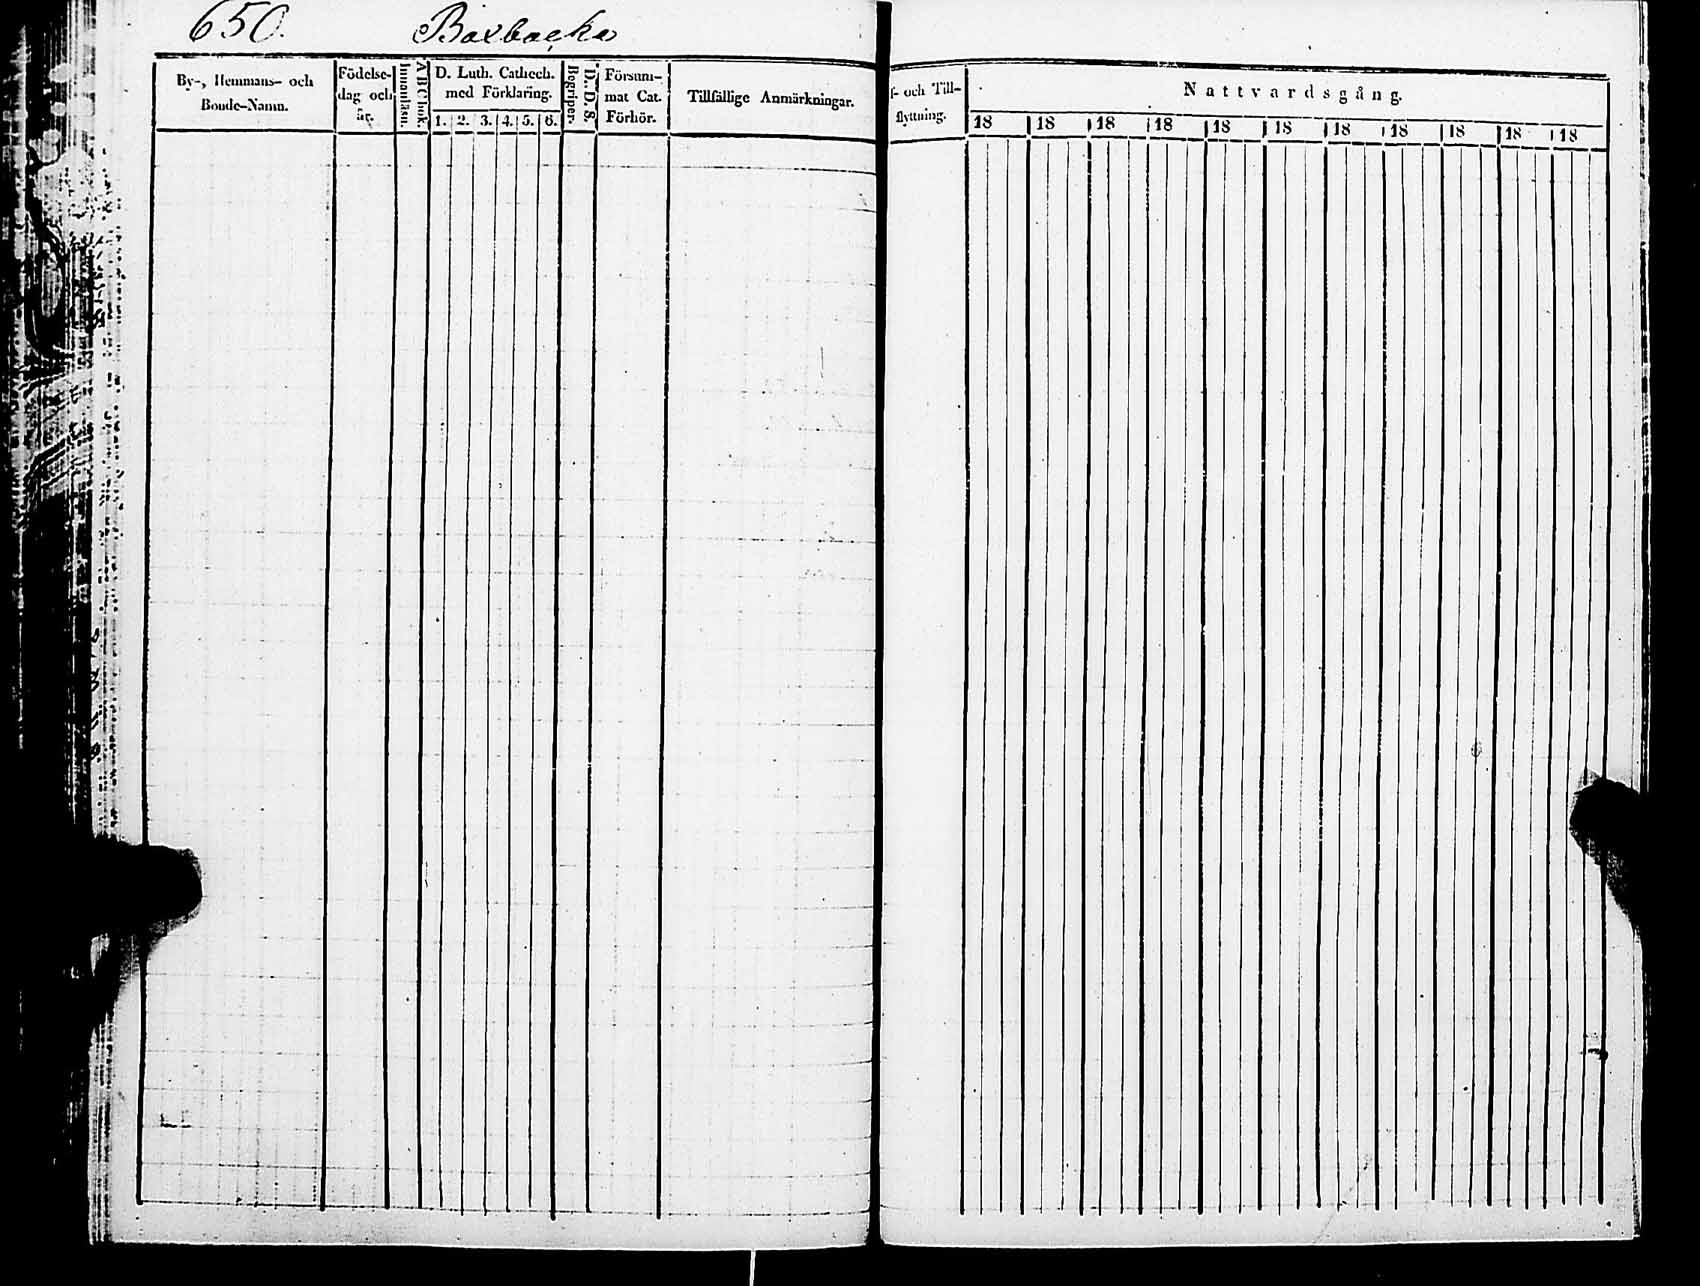 650. Boxbacka
By-, Hemmans- och
Bonde-Namn.
Födelse-
dag och
år.
A B C bok.
Innanläsn.
D. Luth. Cathech.
med Förklaring.
1. 2. 3. 4. 5. 6.
D. D. S.
Begriper.
Försum-
mat Cat.
Förhör.
Tillfällige Anmärkningar.
f- och Till-
flyttning.
Nattvardsgång.
18 18 18 18 18 18 18 18 18 18 18